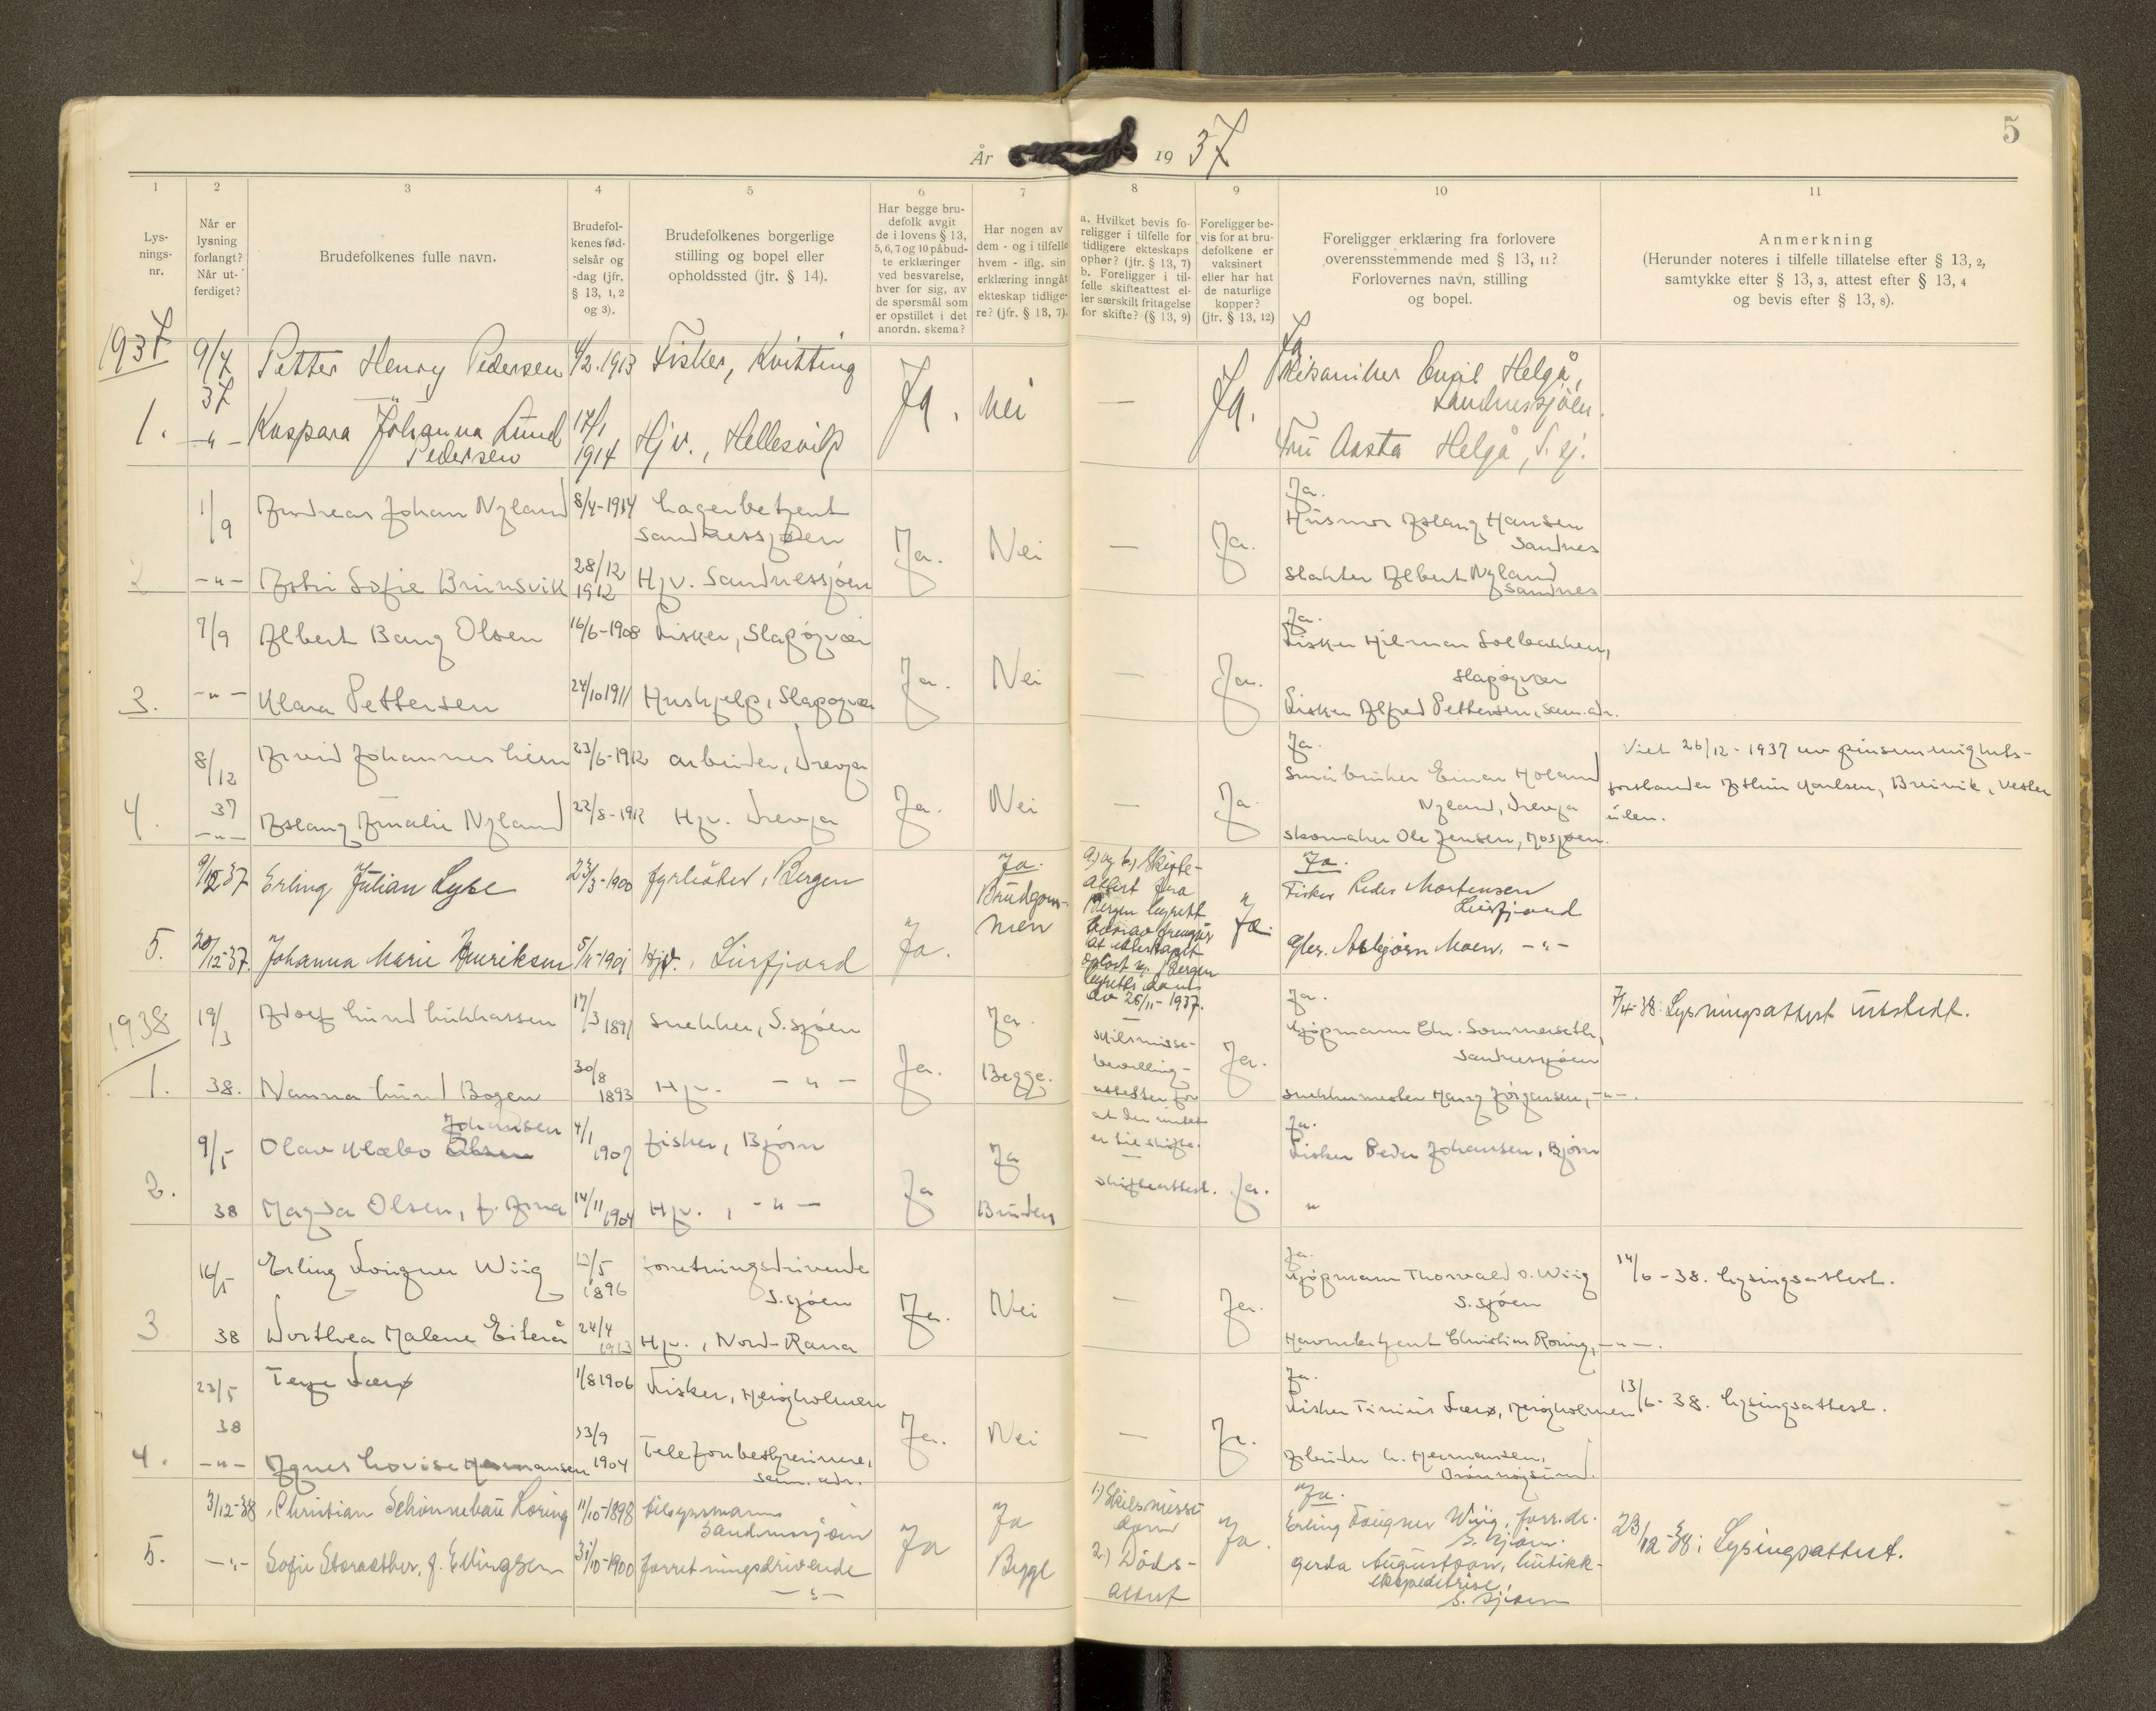 5
År 1937
1
2
3
4
5
6
7
8
9
10
11
Lys-
nings-
nr.
Når er
lysning
forlangt?
Når ut-
ferdiget?
Brudefolkenes fulle navn.
Brudefol-
kenes fød-
selsår og
-dag (jfr.
§ 13, 1, 2
og 3).
Brudefolkenes borgerlige
stilling og bopel eller
opholdssted (jfr. § 14).
Har begge bru-
defolk avgit
de i lovens § 13,
5, 6, 7 og 10 påbud-
te erklæringer
ved besvarelse,
hver for sig, av
de spørsmål som
er opstillet i det
anordn. skema?
Har nogen av
dem - og i tilfelle
hvem - iflg. sin
erklæring inngåt
ekteskap tidlige-
re? (jfr. § 13, 7).
a. Hvilket bevis fo-
religger i tilfelle for
tidligere ekteskaps
ophør? (jfr. § 13, 7)
b. Foreligger i til-
felle skifteattest el-
ler særskilt fritagelse
for skifte? (§ 13, 9)
Foreligger be-
vis for at bru-
defolkene er
vaksinert
eller har hat
de naturlige
kopper?
(jfr. § 13, 12)
Foreligger erklæring fra forlovere
overensstemmende med § 13, 11?
Forlovernes navn, stilling
og bopel.
Anmerkning
(Herunder noteres i tilfelle tillatelse efter § 13, 2,
samtykke efter § 13, 3, attest efter § 13, 4
og bevis efter § 13, 8).
1937
1.
9/7
37
-"-
Petter Henry Pedersen
Kaspara Johanna Lund
Pedersen
4/2.1913
17/1
1914
Fisker, Kvitting
Hjv., Hellesvik
Ja.
Nei
—
Ja.
Ja
Mekaniker Emil Helgå,
Sandnessjøen.
Fru Aasta Helgå, S.sj.
2
1/9
-"-
Andreas Johan Nyland
Astri Sofie Brunsvik
8/4-1914
28/12
1912
Lagerbetjent
Sandnessjøen
Hjv. Sandnessjøen
Ja.
Nei
—
Ja.
Ja.
Husmor Aslaug Hansen
Sandnes
Slakter Albert Nyland
Sandnes
3.
7/9
-"-
Albert Bang Olsen
Klara Pettersen
16/6-1908
24/10 1911
Fisker, Slapøyvær
Hushjelp, Slapøyvær
Ja.
Nei
—
Ja.
Ja.
Fisker Hilmar Solbakken,
Slapøyvær
Fisker Alfred Pettersen, sam. adr.
4.
8/12
37
-"-
Arvid Johannes Lien
Aslaug Amalie Nyland
23/6-1912
22/8-1912
Arbeider, Drevja
Hjv. Drevja
Ja.
Nei
—
Ja.
Ja.
Småbruker Einar Holand
Nyland, Drevja
Skomaker Ole Jensen, Mosjøen.
Viet 26/12-1937 av pinsemenighets-
forstander Karlsen, Breivik,
5.
9/12 37
20/12-37.
Erling Julian Lyse
Johanna Marie Henriksen
23/3-1900
5/11-1901
fyrbøter, Bergen
Hjv., Leirfjord
Ja.
Ja.
Brudgom-
men
a.) og b.) Skifte-
attest fra
Bergen byrett
hvorav fremgår
at ekteskapet
opløst v. Bergen
byretts dom
av 26/11-1937.
Ja.
Ja.
Fisker Peder Mortensen
Leirfjord
Gbr. Asbjørn Moen. -"-
1938
1.
19/3
38.
Adolf Lund Lukkassen
Nanna Lund Bogen
17/3 1891
30/8
1893
Snekker, S.sjøen
Hjv. -"-
Ja.
Ja.
Begge.
Skilsmisse-
bevilling-
attester for
at der intet
er til skifte.
Ja.
Ja.
Kjøpmann Chr. Sommerseth,
Sandnessjøen
Snekkermester Harry Jørgensen, -"-.
7/4-38: Lysningsattest utstedt.
2.
9/5
38
Johansen
Olav Klæbo Olsen
Magda Olsen, f. Arna
4/1
1907
14/11 1904
Fisker, Bjørn
Hjv., -"-
Ja
Ja
Bruden
Skifteattest.
Ja.
Ja.
Fisker Peder Johansen, Bjørn
"
3
16/5
38
Erling Fougner Wiig
Dorthea Malene Eiterå
12/5
1896
24/4
1913
Forretningsdrivende
S.sjøen
Hjv., Nord-Rana
Ja.
Nei
—
Ja.
Ja.
Kjøpmann Thorvald O. Wiig
S.sjøen
Havnebetjent Christian Roring, -"-.
14/6-38. Lysingsattest.
4.
23/5
38
-"-
Terje Færø
Agnes Lovise Hermansen
1/8 1906
13/9
1904
Fisker, Herøyholmen
Telefonbestyrerinne,
sam. adr.
Ja.
Nei
—
Ja.
Ja.
Fisker Tinius Færø, Herøyholmen
Arbeider L. Hermansen,
Brønnøysund.
13/6-38. Lysingsattest.
5.
3/12-38
-"-
Christian Schønnebau Roring
Sofie Storæther, f. Ellingsen
11/10-1898
31/10-1900
tilsynsmann
Sandnessjøen
forretningsdrivende
-"-
Ja
Ja
Begge
1.) Skilsmisse
dom
2.) Døds-
attest
Ja.
Ja.
Erling Fougner Wiig, forr.dr.
S. sjøen.
Gerda Augustson, butikk-
ekspeditrise,
S. sjøen
23/12-38: Lysingsattest.